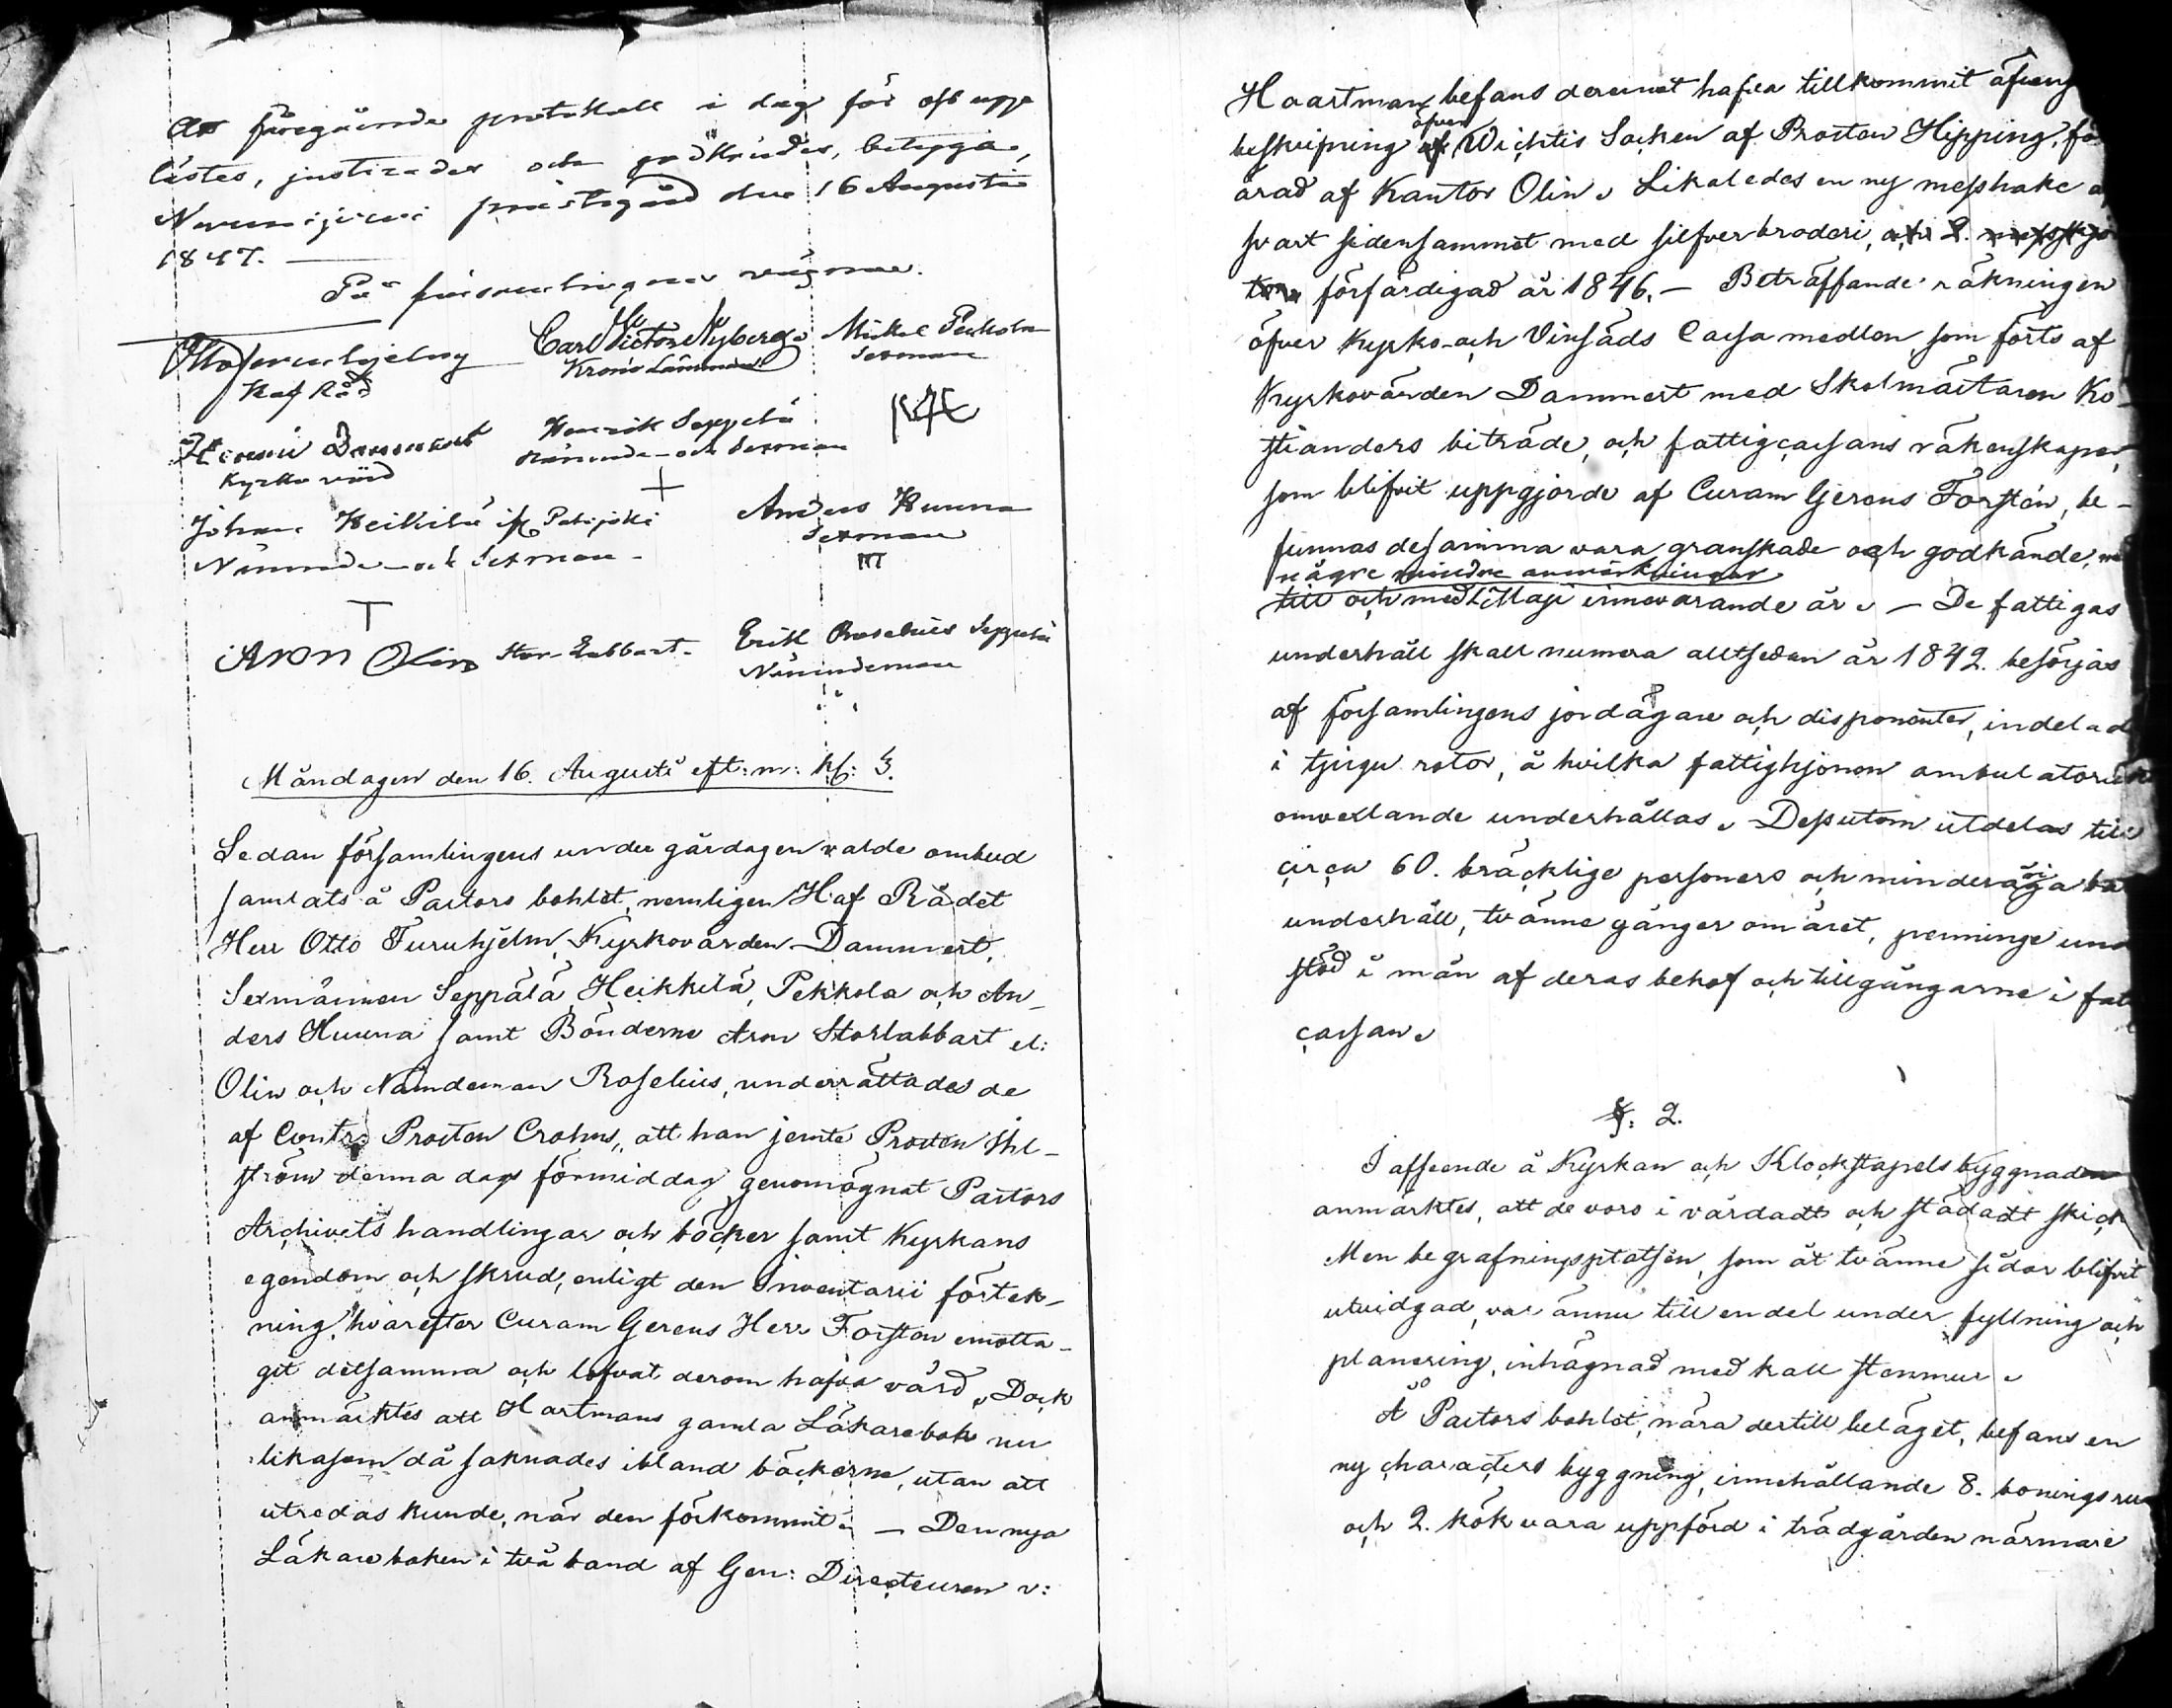 Att föregående protokoll i dag för oss upp
lästes, justerades och godkändes, betyga,
Nurmijärvi prästgård den 16 Augusti
1847.
På församlingens vägnar.
Otto Furuhjelm Carl Victor Nyberg Mikel Pekkola
Hof Råd Krono Länsman Sexman
Dammert Henrik Seppälä
Kyrko värd Nämnde- och Sexman
Johan Heikkilä
Anders Huuna
Nämnde- och Sexman
Sexman
Aron Olin Stor-Labbart Erik Roselius Seppälä
Nämndeman
Måndagen den 16. Augusti eft: m: kl: 3.
Sedan församlingens under gårdagen valde ombud
samlats å Pastors bohlet, nemligen Hof Rådet
Herr Otto Furuhjelm, Kyrkovärden Dammert,
Sexmännen Seppälä, Heikkilä, Pekkola och An-
ders Huuna samt Bönderne Aron Storlabbart el:
Olin och Nämdeman Roselius, underrättades de
af Contr: Prosten Crohns, att han jemte Prosten Ahl-
ström denna dags förmiddag genomögnat Pastors
Archivets handlingar och böcker samt Kyrkans
egendom och skrud, enligt den Inventarii förtek-
ning, hvarefter Curam Gerens Herr Forstén emotta-
git detsamma och lofvat derom hafva vård. Dock
anmärktes att Hartmans gamla Läkarebok nu
likasom då saknades ibland böckerne, utan att
utredas kunde, när den förkommit. — Den nya
Läkareboken i två band af Gen: Directeuren v:
Haartman befans deremot hafva tillkommit äfven
beskrifning öfver Wichtis Socken af Prosten Hipping, för
ärad af Kantor Olin. Likaledes en ny messhake a
svart sidensammet med silfverbroderi, och 2.
förfärdigad år 1846. — Beträffande räkningen
öfver Kyrko- och Vinsäds Cassa medlen som förts af
Kyrkovärden Dammert med Skolmästaren Ko-
stianders biträde, och fattigcassans räkenskaper,
som blifvit uppgjorde af Curam Gerens Forstén, be-
funnas desamma vara granskade och godkände, med
några mindre anmärkningar
till och med Maji innevarande år. — De fattigas
underhåll skall numera alltsedan år 1842. besörjas
af församlingens jordägare och disponenter, indelade
i tjugu rotor, å hvilka fattighjonen ambulatoriskt
omvexlande underhållas. Dessutom utdelas till
circa 60. bräcklige personers och minderåriga ba
underhåll, tvänne gånger om året, penninge und
stöd i mån af deras behof och tillgångarne i fat
cassan.
§: 2.
I afseende å Kyrkan och Klockstapelsbyggnaden
anmärktes, att de voro i vårdadt och städadt skick
Men begrafningsplatsen, som åt tvänne sidor blifvit
utvidgad, var ännu till en del under fyllning och
planering, inhägnad med kall stenmur.
Å Pastors bohlet, nära dertill beläget, befans en
ny characters byggning, innehållande 8. bonings rum
och 2. kök vara uppförd i trädgården närmare